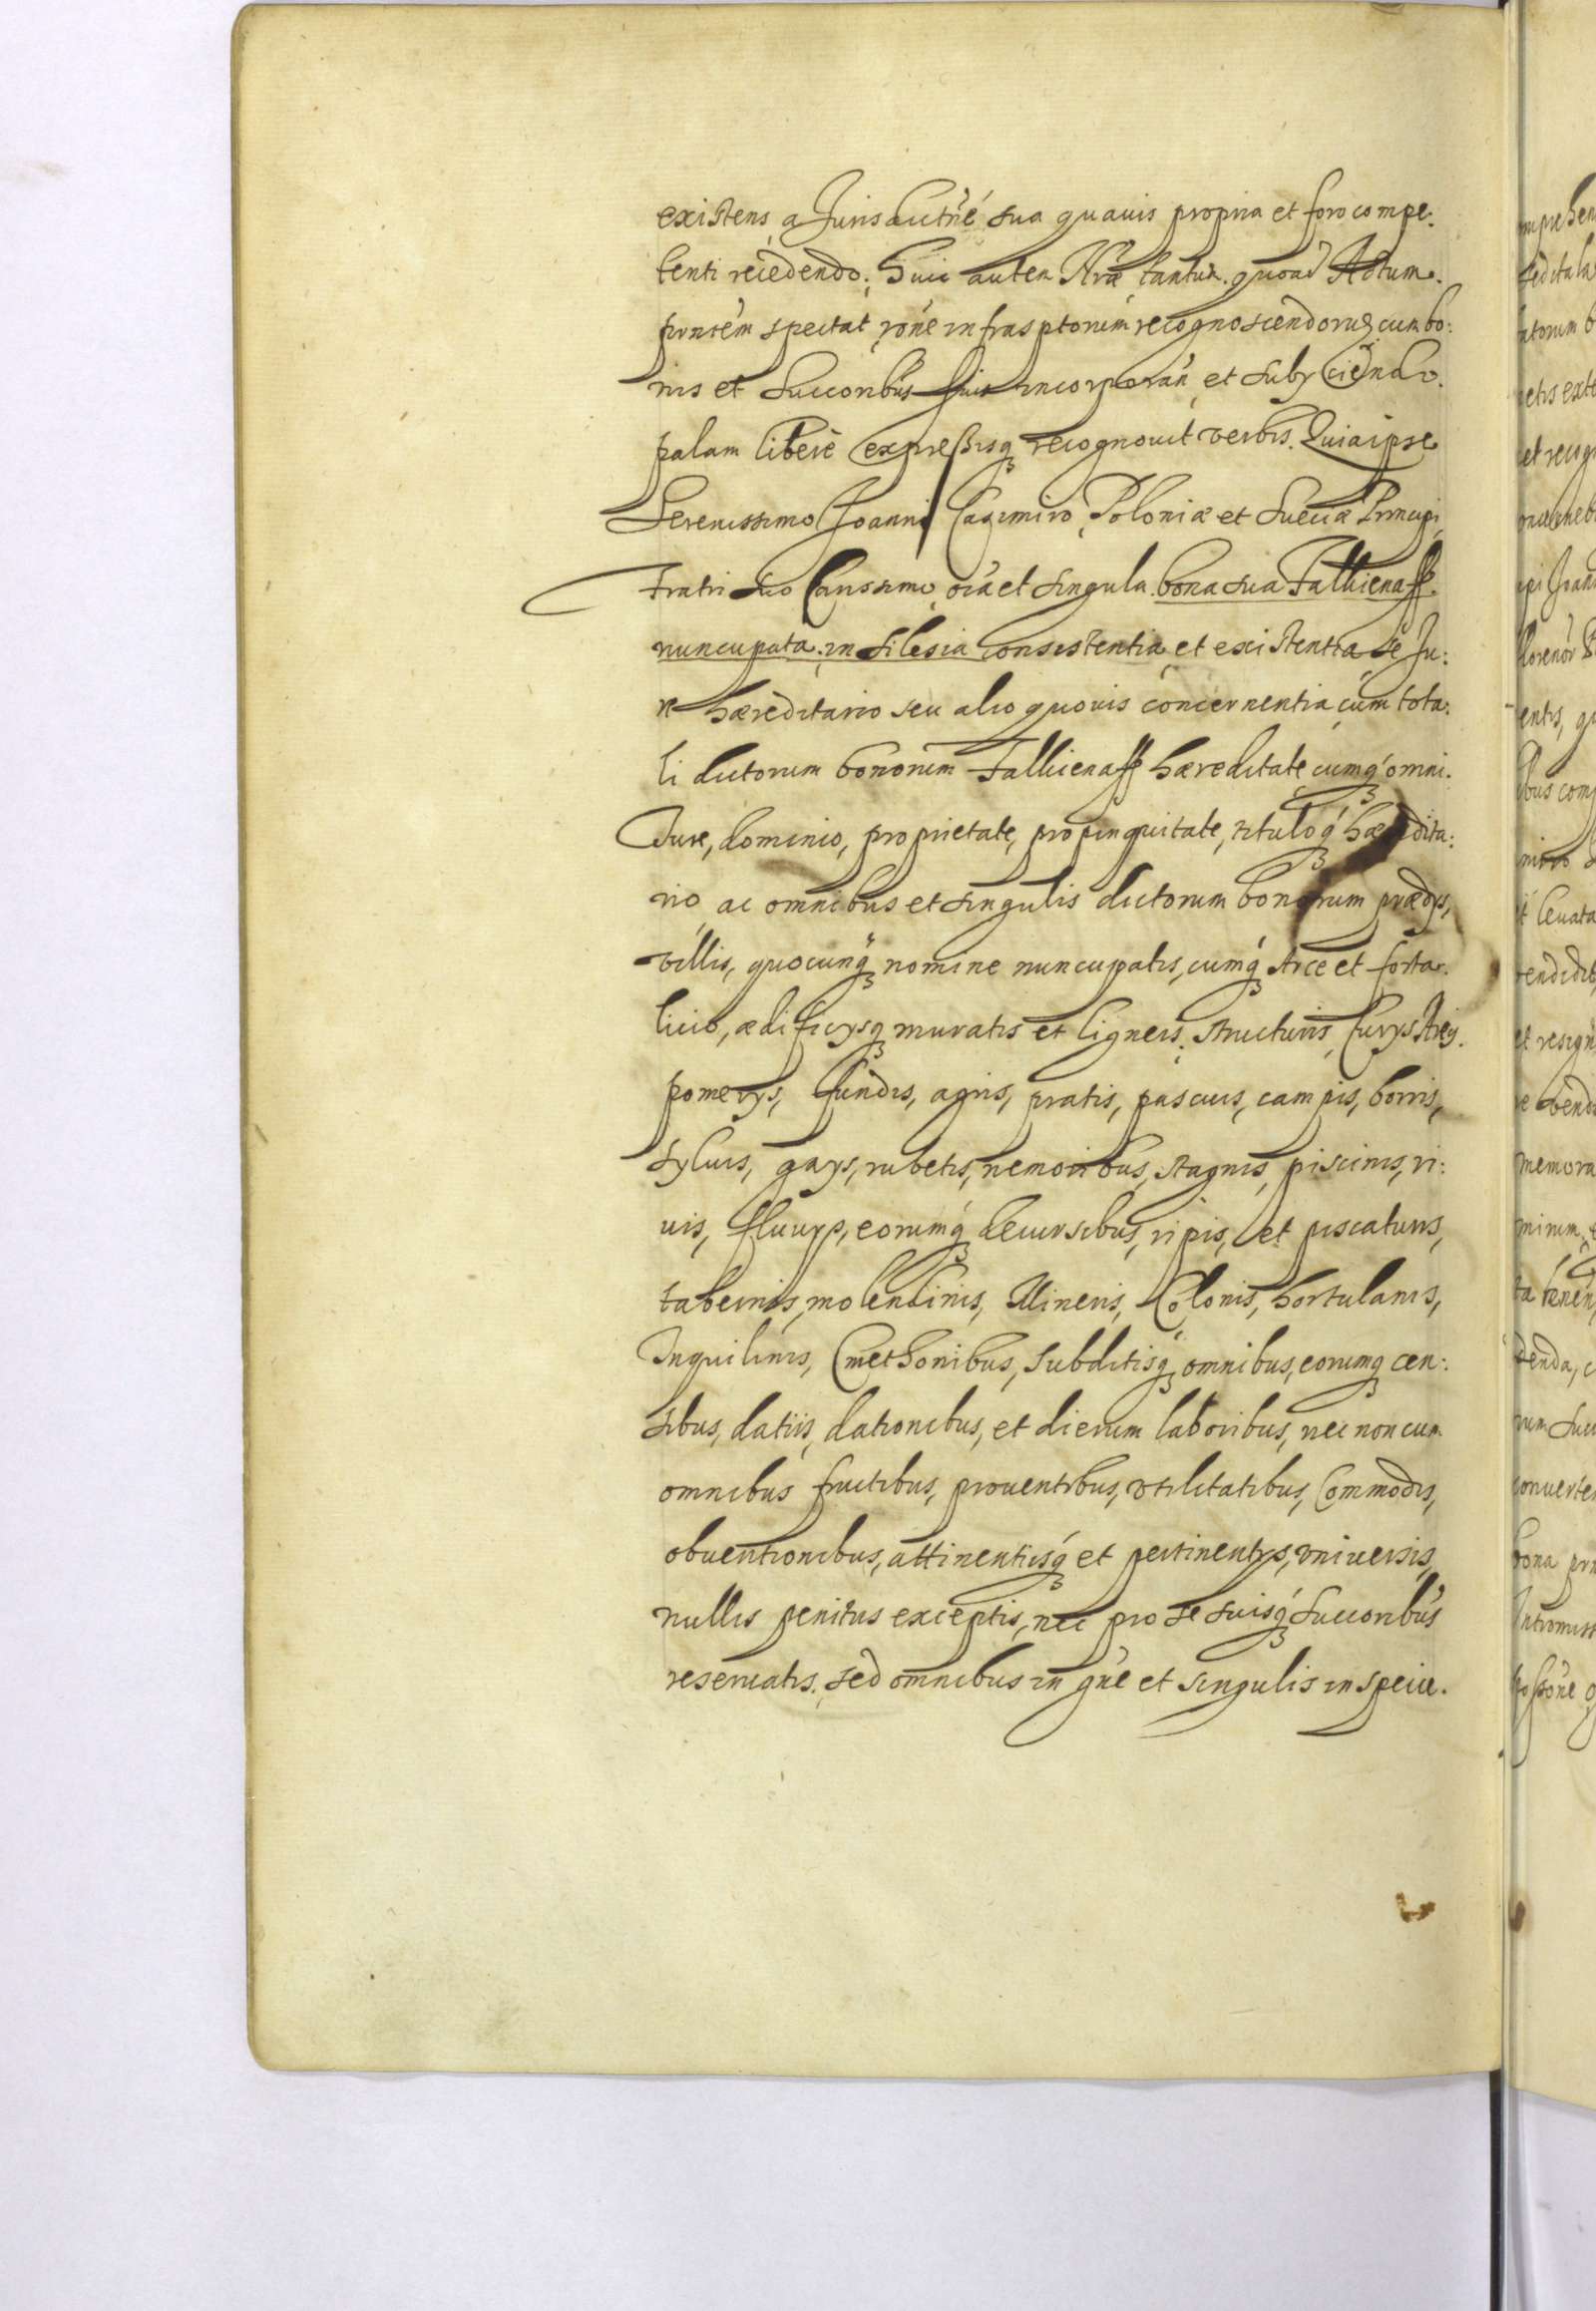 existens, a Jurisdictne sua quavis propria et foro compe:
tenti recedendo. Huic autem Nræ tantum quoad Actum
pnntem spectat rone infrasptorum recognoscendorum cum bo:
nis et Succoribus suis incorporan et subyciendo.
palam libere expressisq recognovit verbis. Quia ipse
Serenissimo Joanni Casimiro Poloniæ et Sueciæ Principi
Fratri suo Carissimo, oia et singula bona sua Falkienaff
nuncupata in Silesia consistentia et existentia se Ju:
re hæreditario seu alio quovis concernentia cum tota:
li dictorum bonorum Falkienaff hæreditate cumq omni.
Jure, dominio, proprietate, propinquitate, tituloq hæredita:
rio, ac omnibus et singulis dictorum bonorum prædys,
villis, quocunq nomine nuncupatis, cumq Arce et forta:
licio, ædificysq muratis et ligneis structuris, Curys
pomerys, fundis, agris, pratis, pascuis, campis, borris,
sylvis, gays, rubetis, nemoribus, stagnis, piscinis, ri:
uis, fluuys, eorumq decursibus, ripis, et piscaturis,
tabernis, molendinis, Mineris, Colonis, hortulanis,
Inquilinis, Cmethonibus, subditisq omnibus, eorumq cen:
sibus, datiis, dationibus, et dierum laboribus, nec non cum
omnibus fructibus, prouentibus, vtilitatibus, Commodis,
obuentionibus, attinentiisq et pertinentys, vniuersis,
nullis penitus exceptis, nec pro se suisq Succoribus
reseruatis. sed omnibus in gne et singulis in specie.